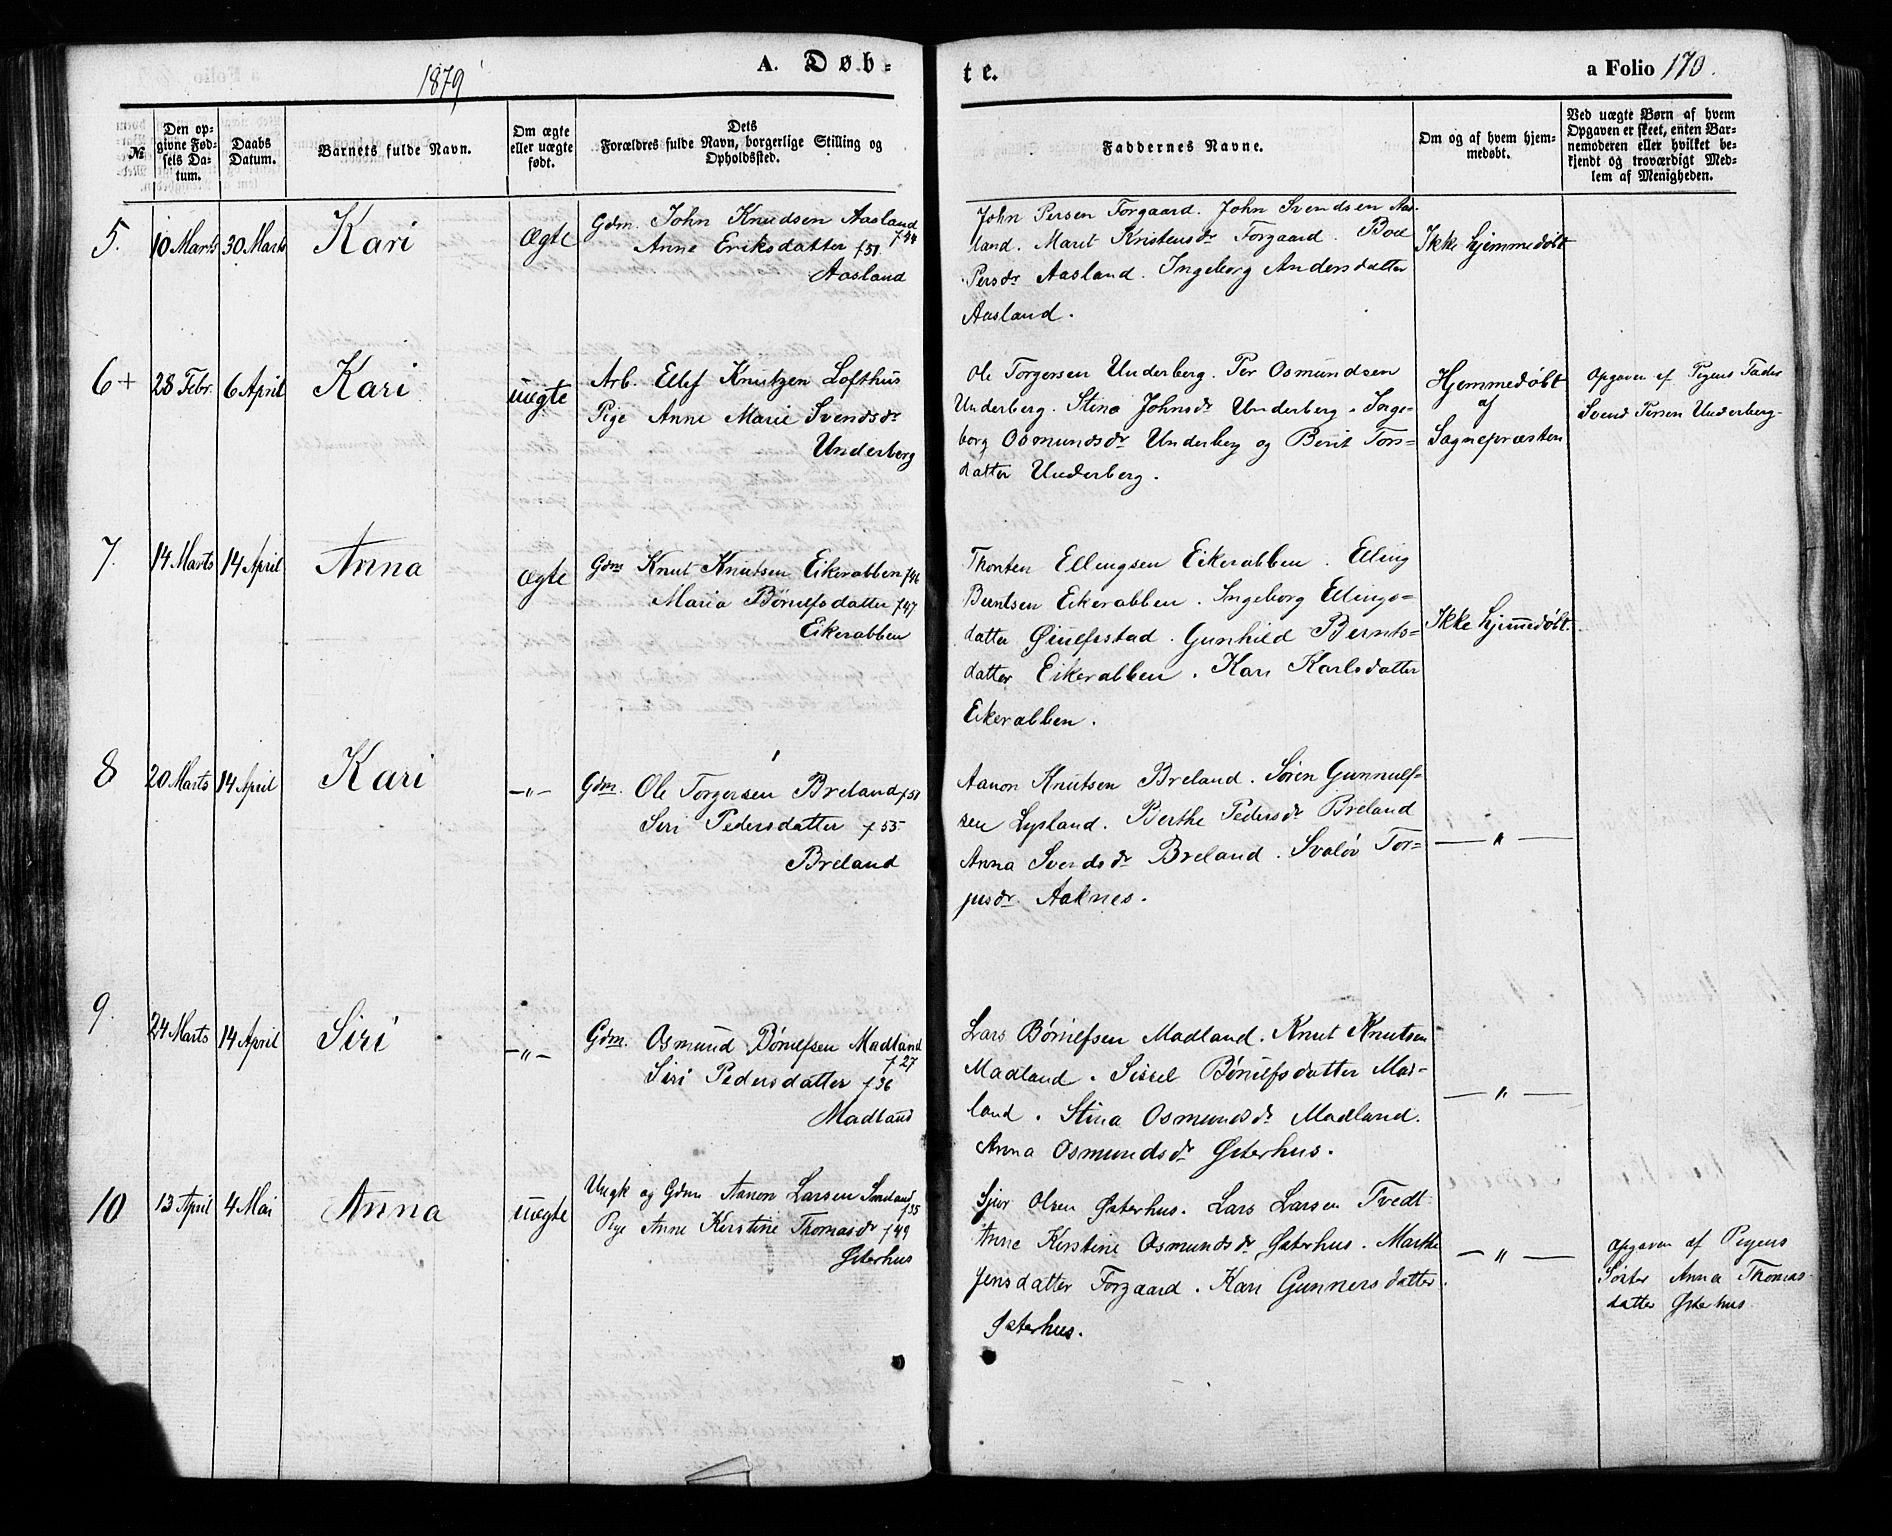 1879
A. Døb-
te.
a Folio 170.
№
Den op-
givne Fød-
sels Da-
tum.
Daabs
Datum.
Barnets fulde Navn.
Om ægte
eller uægte
født.
Dets
Forældres fulde Navn, borgerlige Stilling og
Opholdssted.
Faddernes Navne.
Om og af hvem hjem-
medøbt.
Ved uægte Børn af hvem
Opgaven er skeet, enten Bar-
nemoderen eller hvilket be-
kjendt og troværdigt Med-
lem af Menigheden.
5. 10 Marts 30 Marts Kari Ægte
Gdm. John Knudsen Aasland
f 44
Anne Eriksdatter f 51.
Aasland
John Persen Torgaard. John Svendsen Aas-
land. Maret Kristensdr Torgaard. Boe
Persdr Aasland. Ingeborg Andersdatter
Aasland.
Ikke hjemmedøbt
6+ 28 Febr. 6 April Kari uægte
Arb. Ellef Knutzen Lofthus
Pige Anne Marie Svendsdr
Underberg
Ole Torgersen Underberg. Per Osmundsen
Underberg. Stina Johnsdr Underberg. Inge-
borg Osmundsdr Underberg og Berit Tors-
datter Underberg.
Hjemmedøbt
af
Sognepræsten
Opgaven af Pigens Fader
Svend Persen Underberg-
7. 14 Marts 14 April Anna Ægte
Gdm Knut Knutsen Eikerabben f 46
Maria Børuelfsdatter f 47
Eikerabben
Thorsten Ellingsen Eikerabben. Elling
Berntsen Eikerabben. Ingeborg Ellings-
datter Øiulfsstad. Gunhild Bernts-
datter Eikerabben. Kari Karlsdatter
Eikerabben.
Ikke hjemmedøbt.
8 20 Marts 14 April Kari -"-
Gdm. Ole Torgersen Breland f 51
Siri Pedersdatter f 55
Breland
Aanon Knutsen Breland. Søren Gunnulf-
sen Lysland. Berthe Pedersdr Breland
Anna Svendsdr Breland. Svaløv Tor-
jusdr Aaknes.
-"-
9. 24 Marts 14 April Siri -"-
Gdm. Osmund Børuelfsen Madland
f 27
Siri Pedersdatter f 36
Madland
Lars Børuelfsen Madland. Knut Knutsen
Madland. Sissel Børuelfsdatter Mad-
land. Stina Osmundsdr Madland.
Anna Osmundsdr Østerhus.
-"-
10 13 April 4 Mai Anna uægte
Ungk og Gdm Aanon Larsen
f 35
Pige Anne Kerstine Thomasdr f 49
Østerhus
Sjur Olsen Østerhus. Lars Larsen Tvedt
Anne Kerstine Osmundsdr Østerhus. Marthe
Jensdatter Torgaard. Kari Gunnersdatter
Østerhus.
-"-
Opgaven af Pigens
Søster Anna Thomas-
datter Østerhus